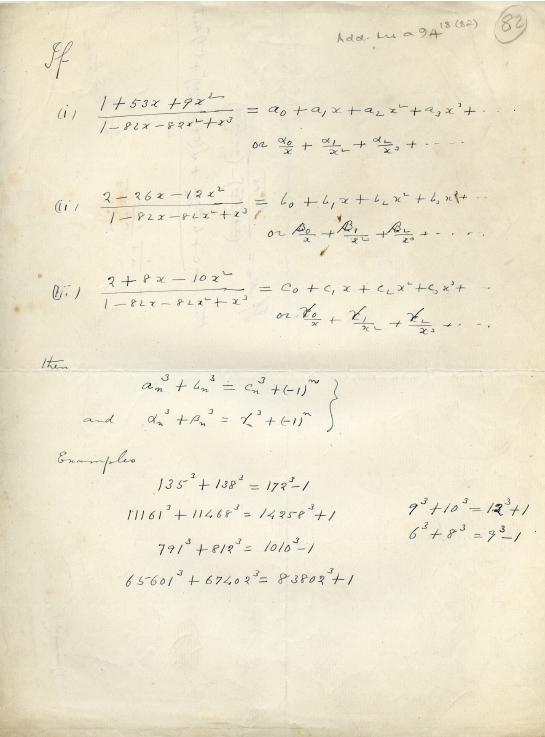 Add. Ms a 94 18 (82) 82
If
(i) (1 + 53x + 9x²)/(1 - 82x - 82x² + x³) = a₀ + a₁x + a₂x² + a₃x³ + ...
or α₀/x + α₁/x² + α₂/x³ + ....
(ii) (2 - 26x - 12x²)/(1 - 82x - 82x² + x³) = b₀ + b₁x + b₂x² + b₃x³ + ...
or β₀/x + β₁/x² + β₂/x³ + .....
(iii) (2 + 8x - 10x²)/(1 - 82x - 82x² + x³) = c₀ + c₁x + c₂x² + c₃x³ + ..
or γ₀/x + γ₁/x² + γ₂/x³ + ....
then
aₙ³ + bₙ³ = cₙ³ + (-1)ⁿ }
and αₙ³ + βₙ³ = γₙ³ + (-1)ⁿ }
Examples
135³ + 138³ = 172³ - 1
11161³ + 11468³ = 14258³ + 1
9³ + 10³ = 12³ + 1
6³ + 8³ = 9³ - 1
791³ + 812³ = 1010³ - 1
65601³ + 67402³ = 83802³ + 1